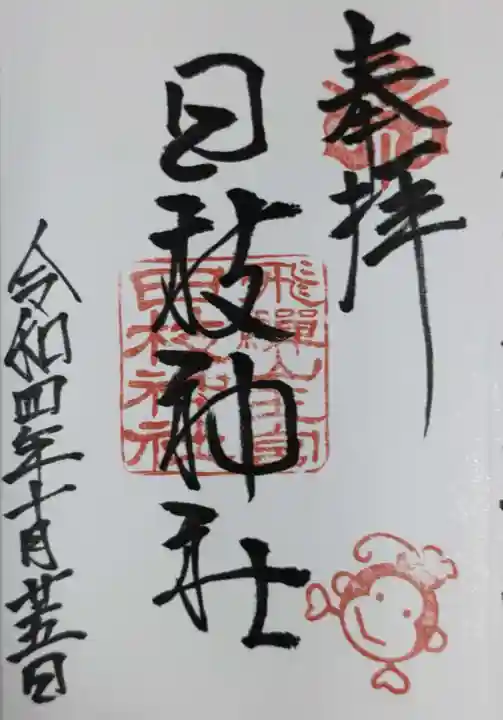 奉拝
日枝神社
飛驒高山
日枝神社
令和四年十月廿五日